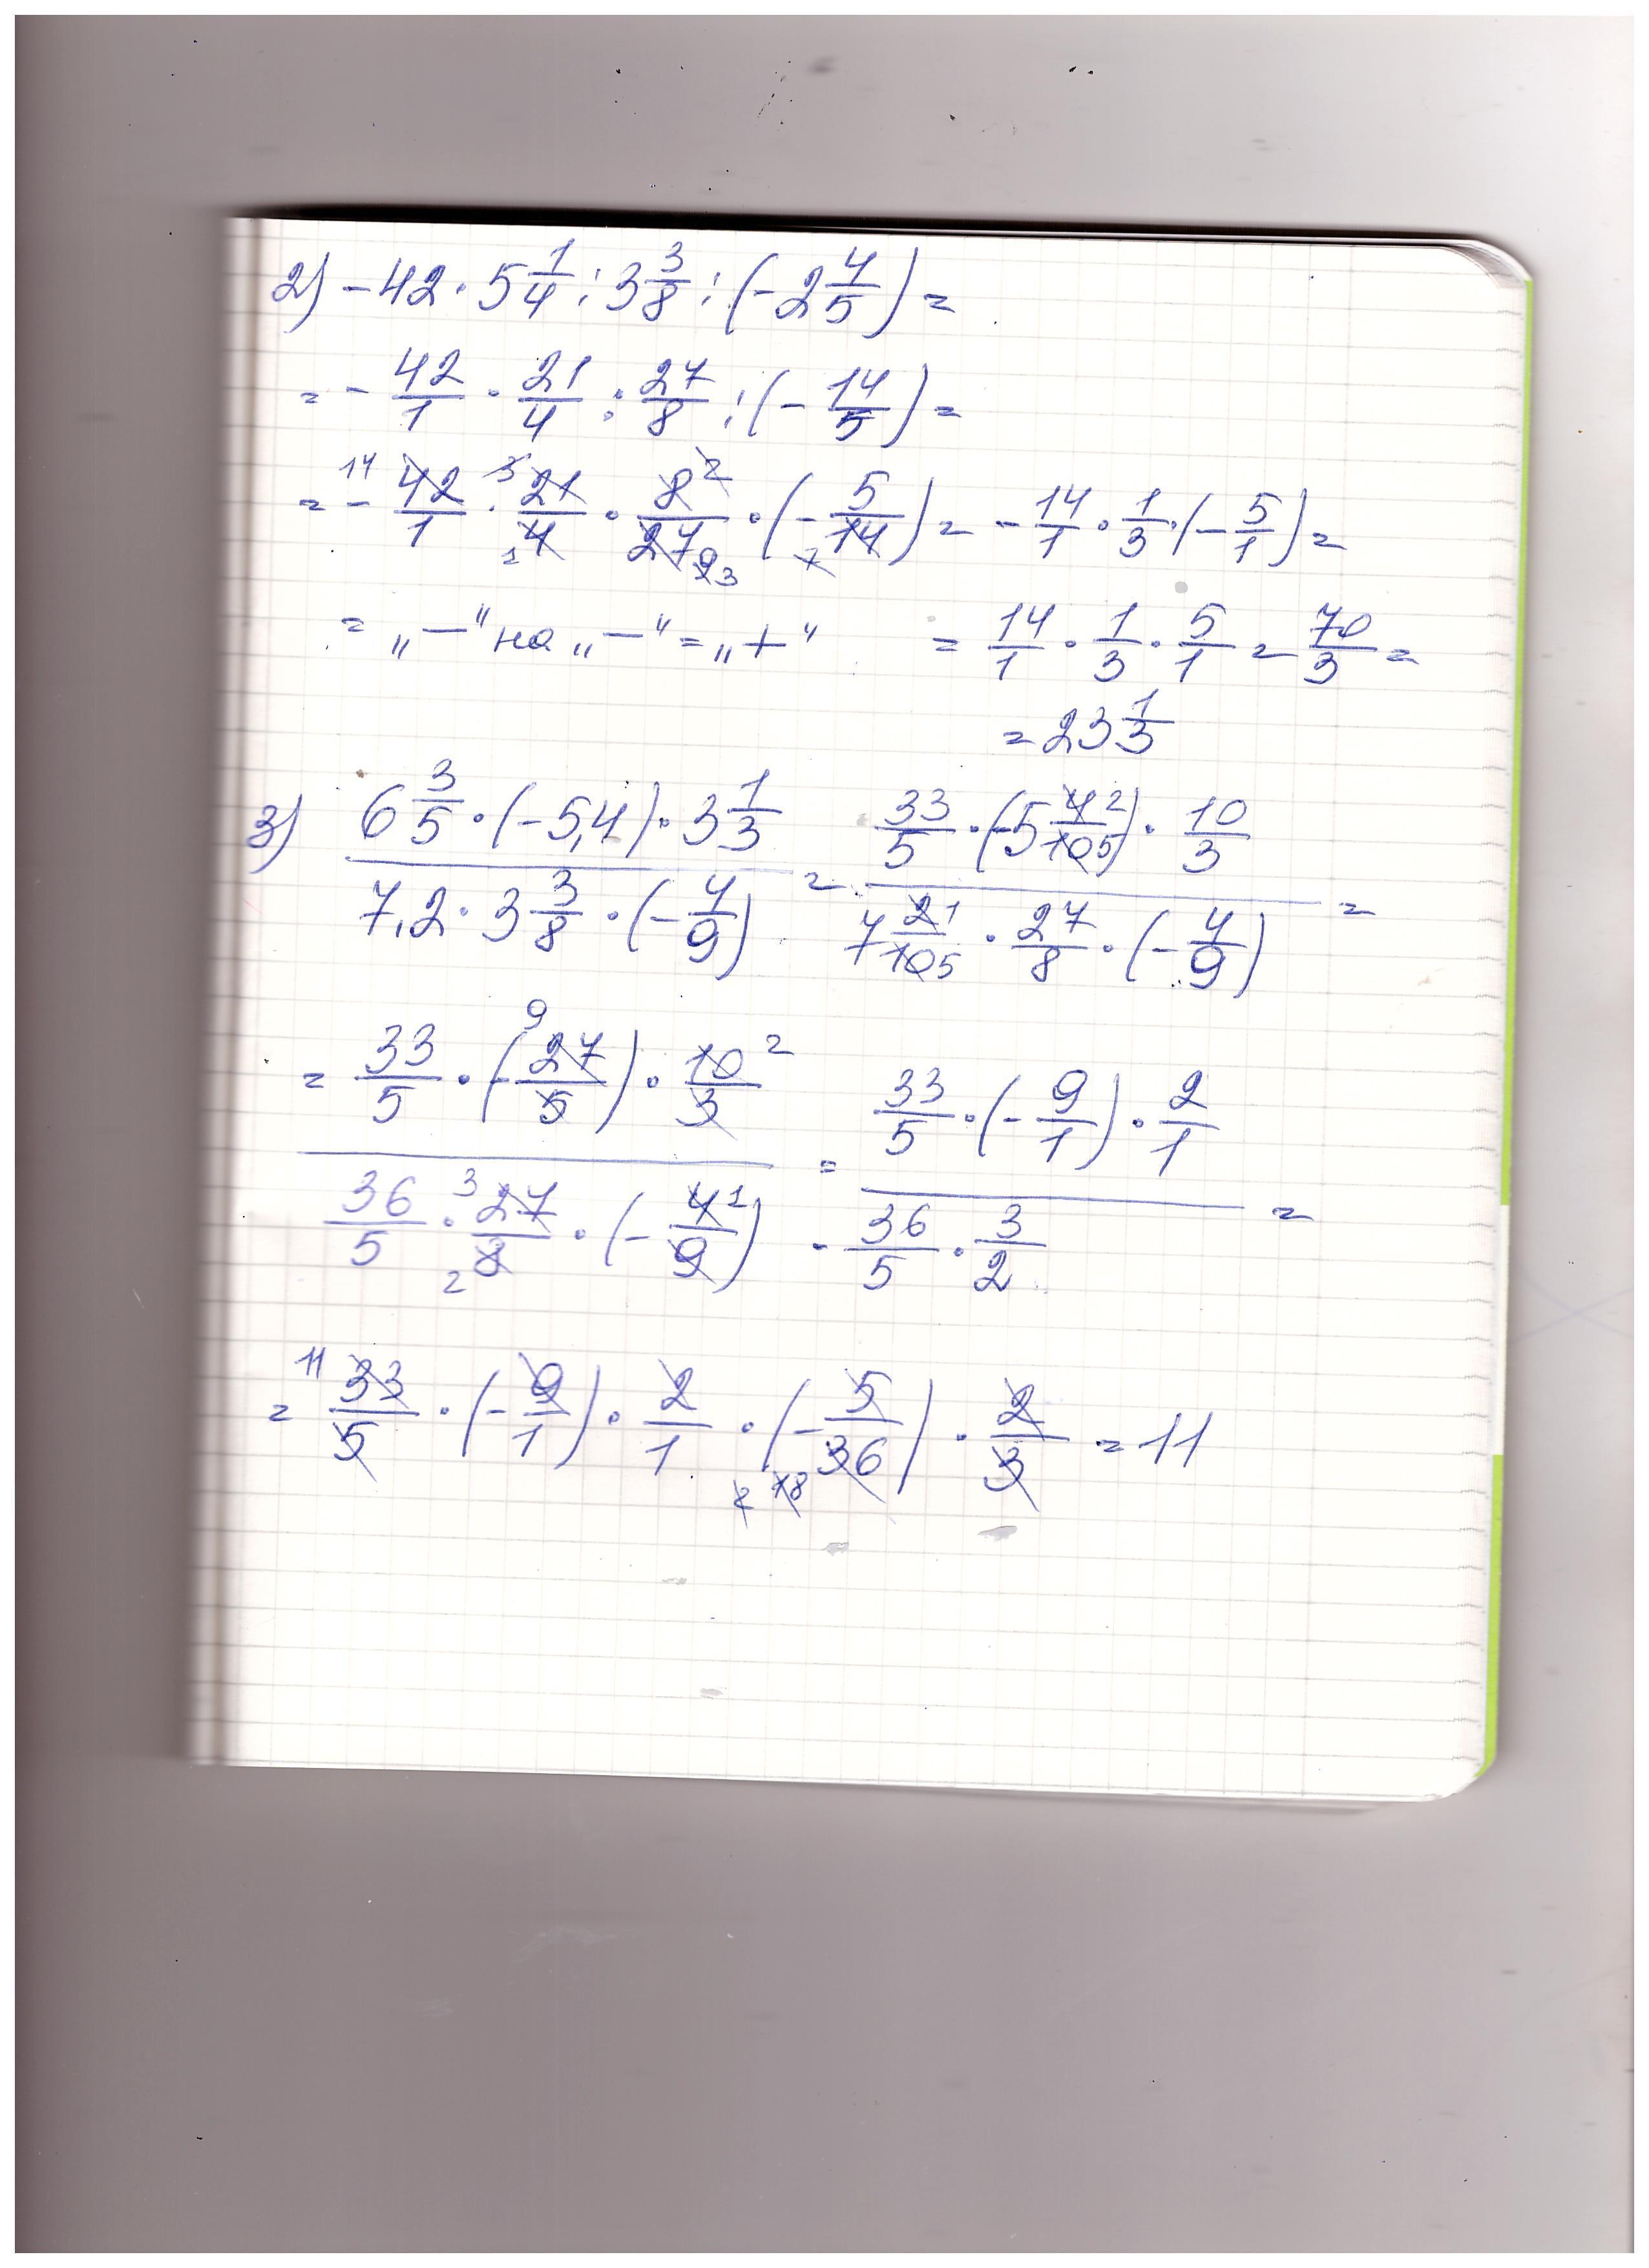 2) -42 · 5 1/4 : 3 3/8 : (-2 4/5) =
= - 42/1 · 21/4 : 27/8 : (- 14/5) =
= - 14 42/1 · 3 21/4 1 · 8 2/27 9 3 · (- 5/14 7) = - 14/1 · 1/3 · (- 5/1) =
= „—" на „—" = „+" = 14/1 · 1/3 · 5/1 = 70/3 =
= 23 1/3
3) (6 3/5 · (-5,4) · 3 1/3)/(7,2 · 3 3/8 · (- 4/9)) = (33/5 · (-5 4 2/10 5) · 10/3)/(7 2 1/10 5 · 27/8 · (- 4/9)) =
= (33/5 · (- 9 27/5) · 10 2/3)/(36/5 · 3 27/8 2 · (- 4 1/9)) = (33/5 · (- 9/1) · 2/1)/(- 36/5 · 3/2) =
= 11 33/5 · (- 9/1) · 2/1 · (- 5/36 18 2) · 2/3 = 11